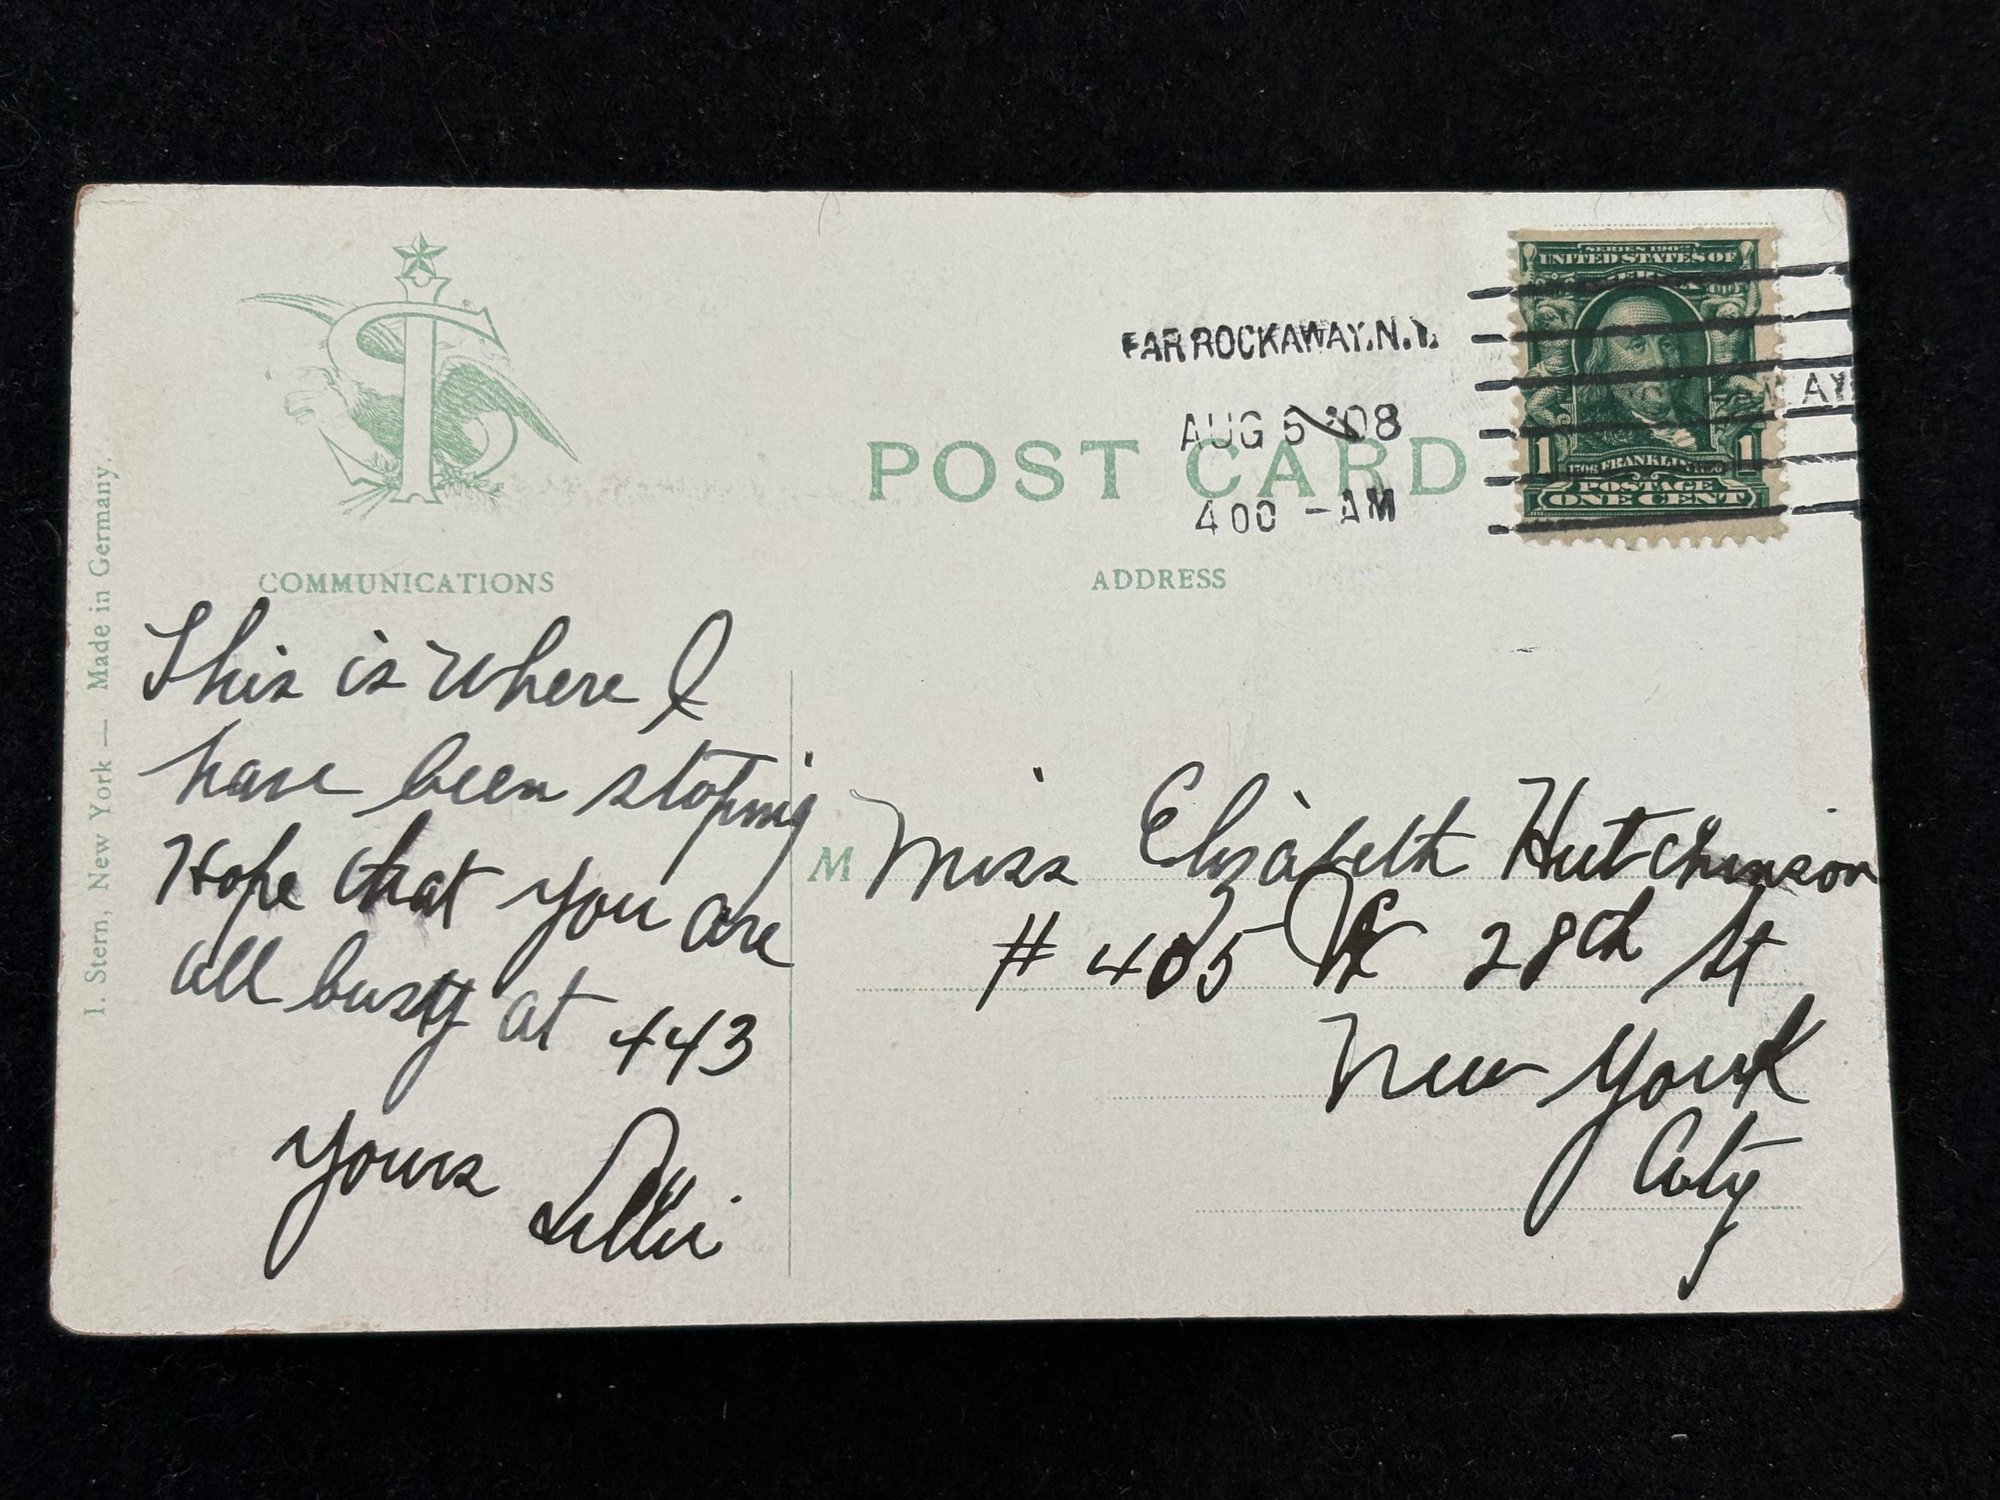 I. Stern, New York — Made in Germany.
COMMUNICATIONS
This is where I
have been stoping
Hope that you are
all busy at 443
yours Lillie
FAR ROCKAWAY, N.Y.
AUG 5 '08
4 00 - AM
POST CARD
SERIES 1902
UNITED STATES OF
1 1706 FRANKLIN 1790 1
POSTAGE
ONE CENT
WAY
ADDRESS
M Miss Elizabeth Hutchinson
# 405 W 28th St
New York
City